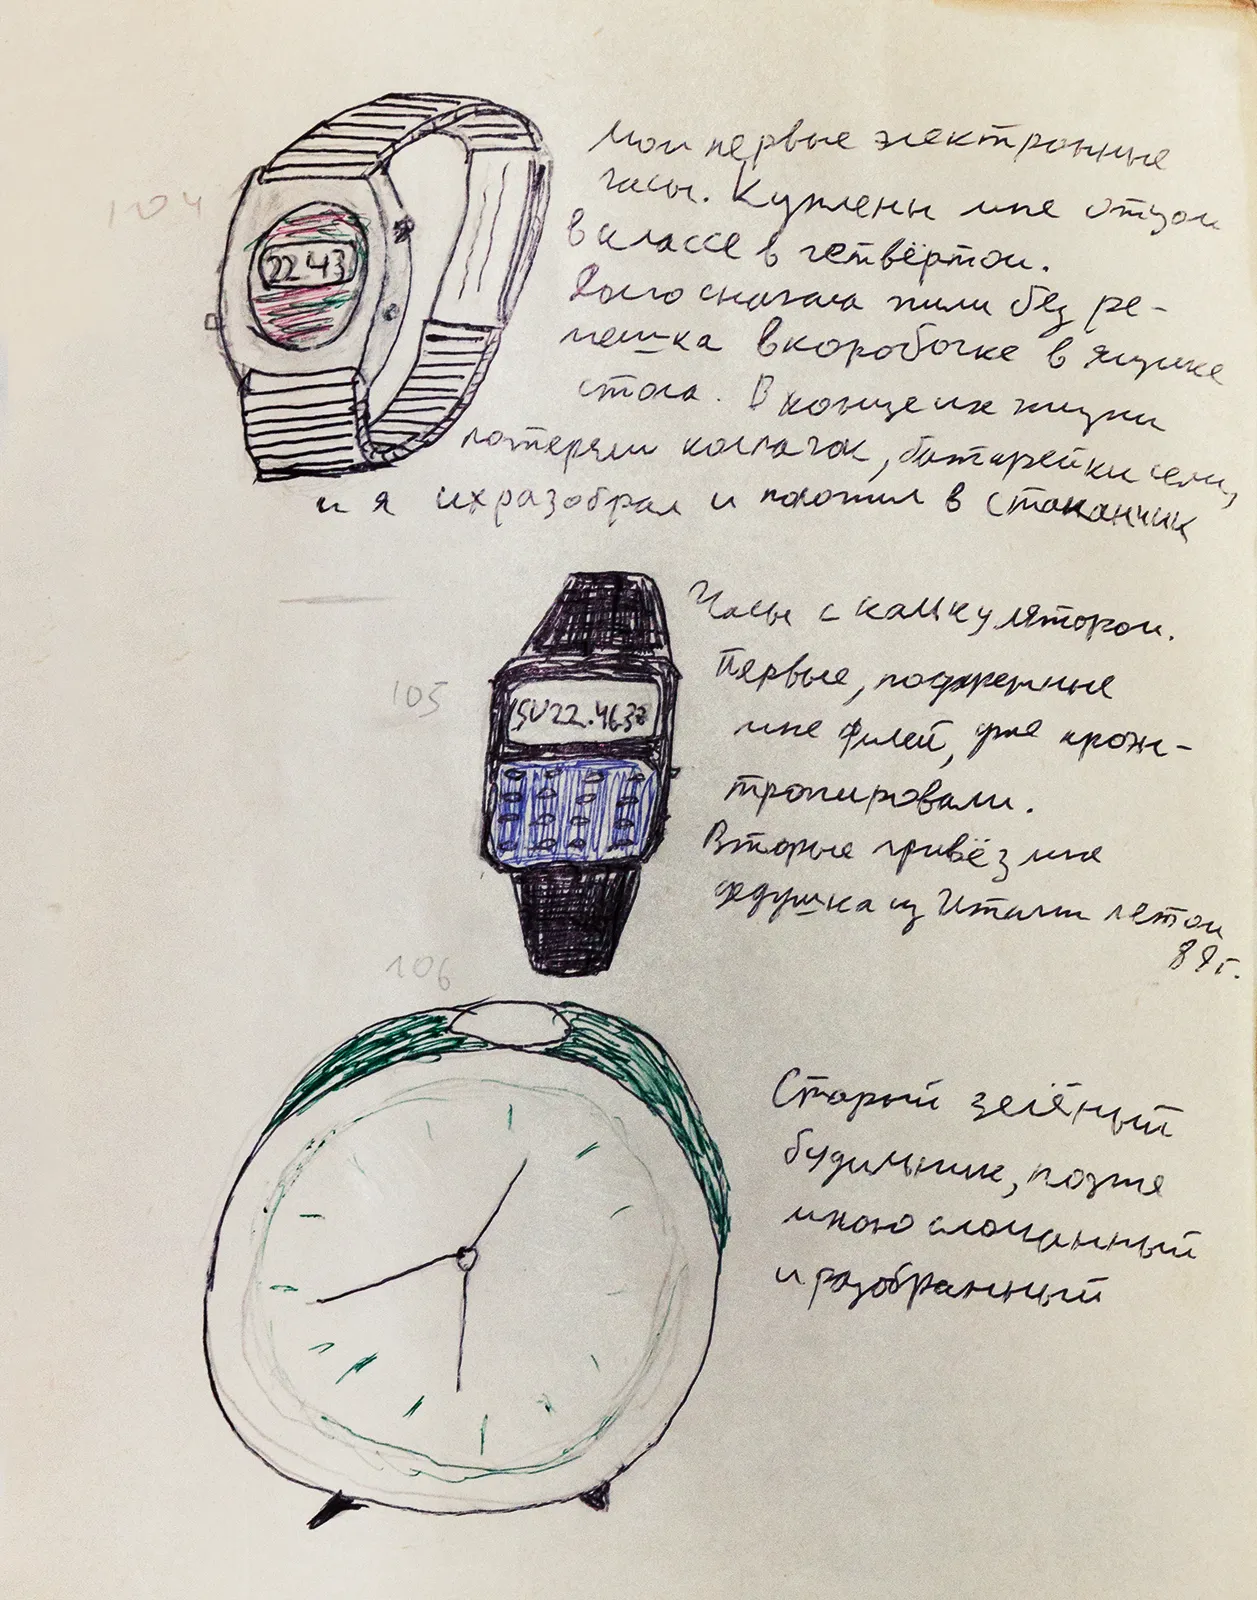 104
Мои первые электронные
часы. Куплены мне отцом
в классе в четвёртом.
22 43
Долго сначала жили без ре-
мешка в коробочке в ящике
стола. В конце их жизни
потеряли колпачок, батарейки сели,
и я их разобрал и положил в стаканчик
Часы с калькулятором.
Первые, подаренные
105
SU22.4638
мне Филей, уже
тропировали.
Вторые привёз мне
дедушка из Италии летом
89г.
106
Старый зелёный
будильник, позже
мною сломанный
и разобранный